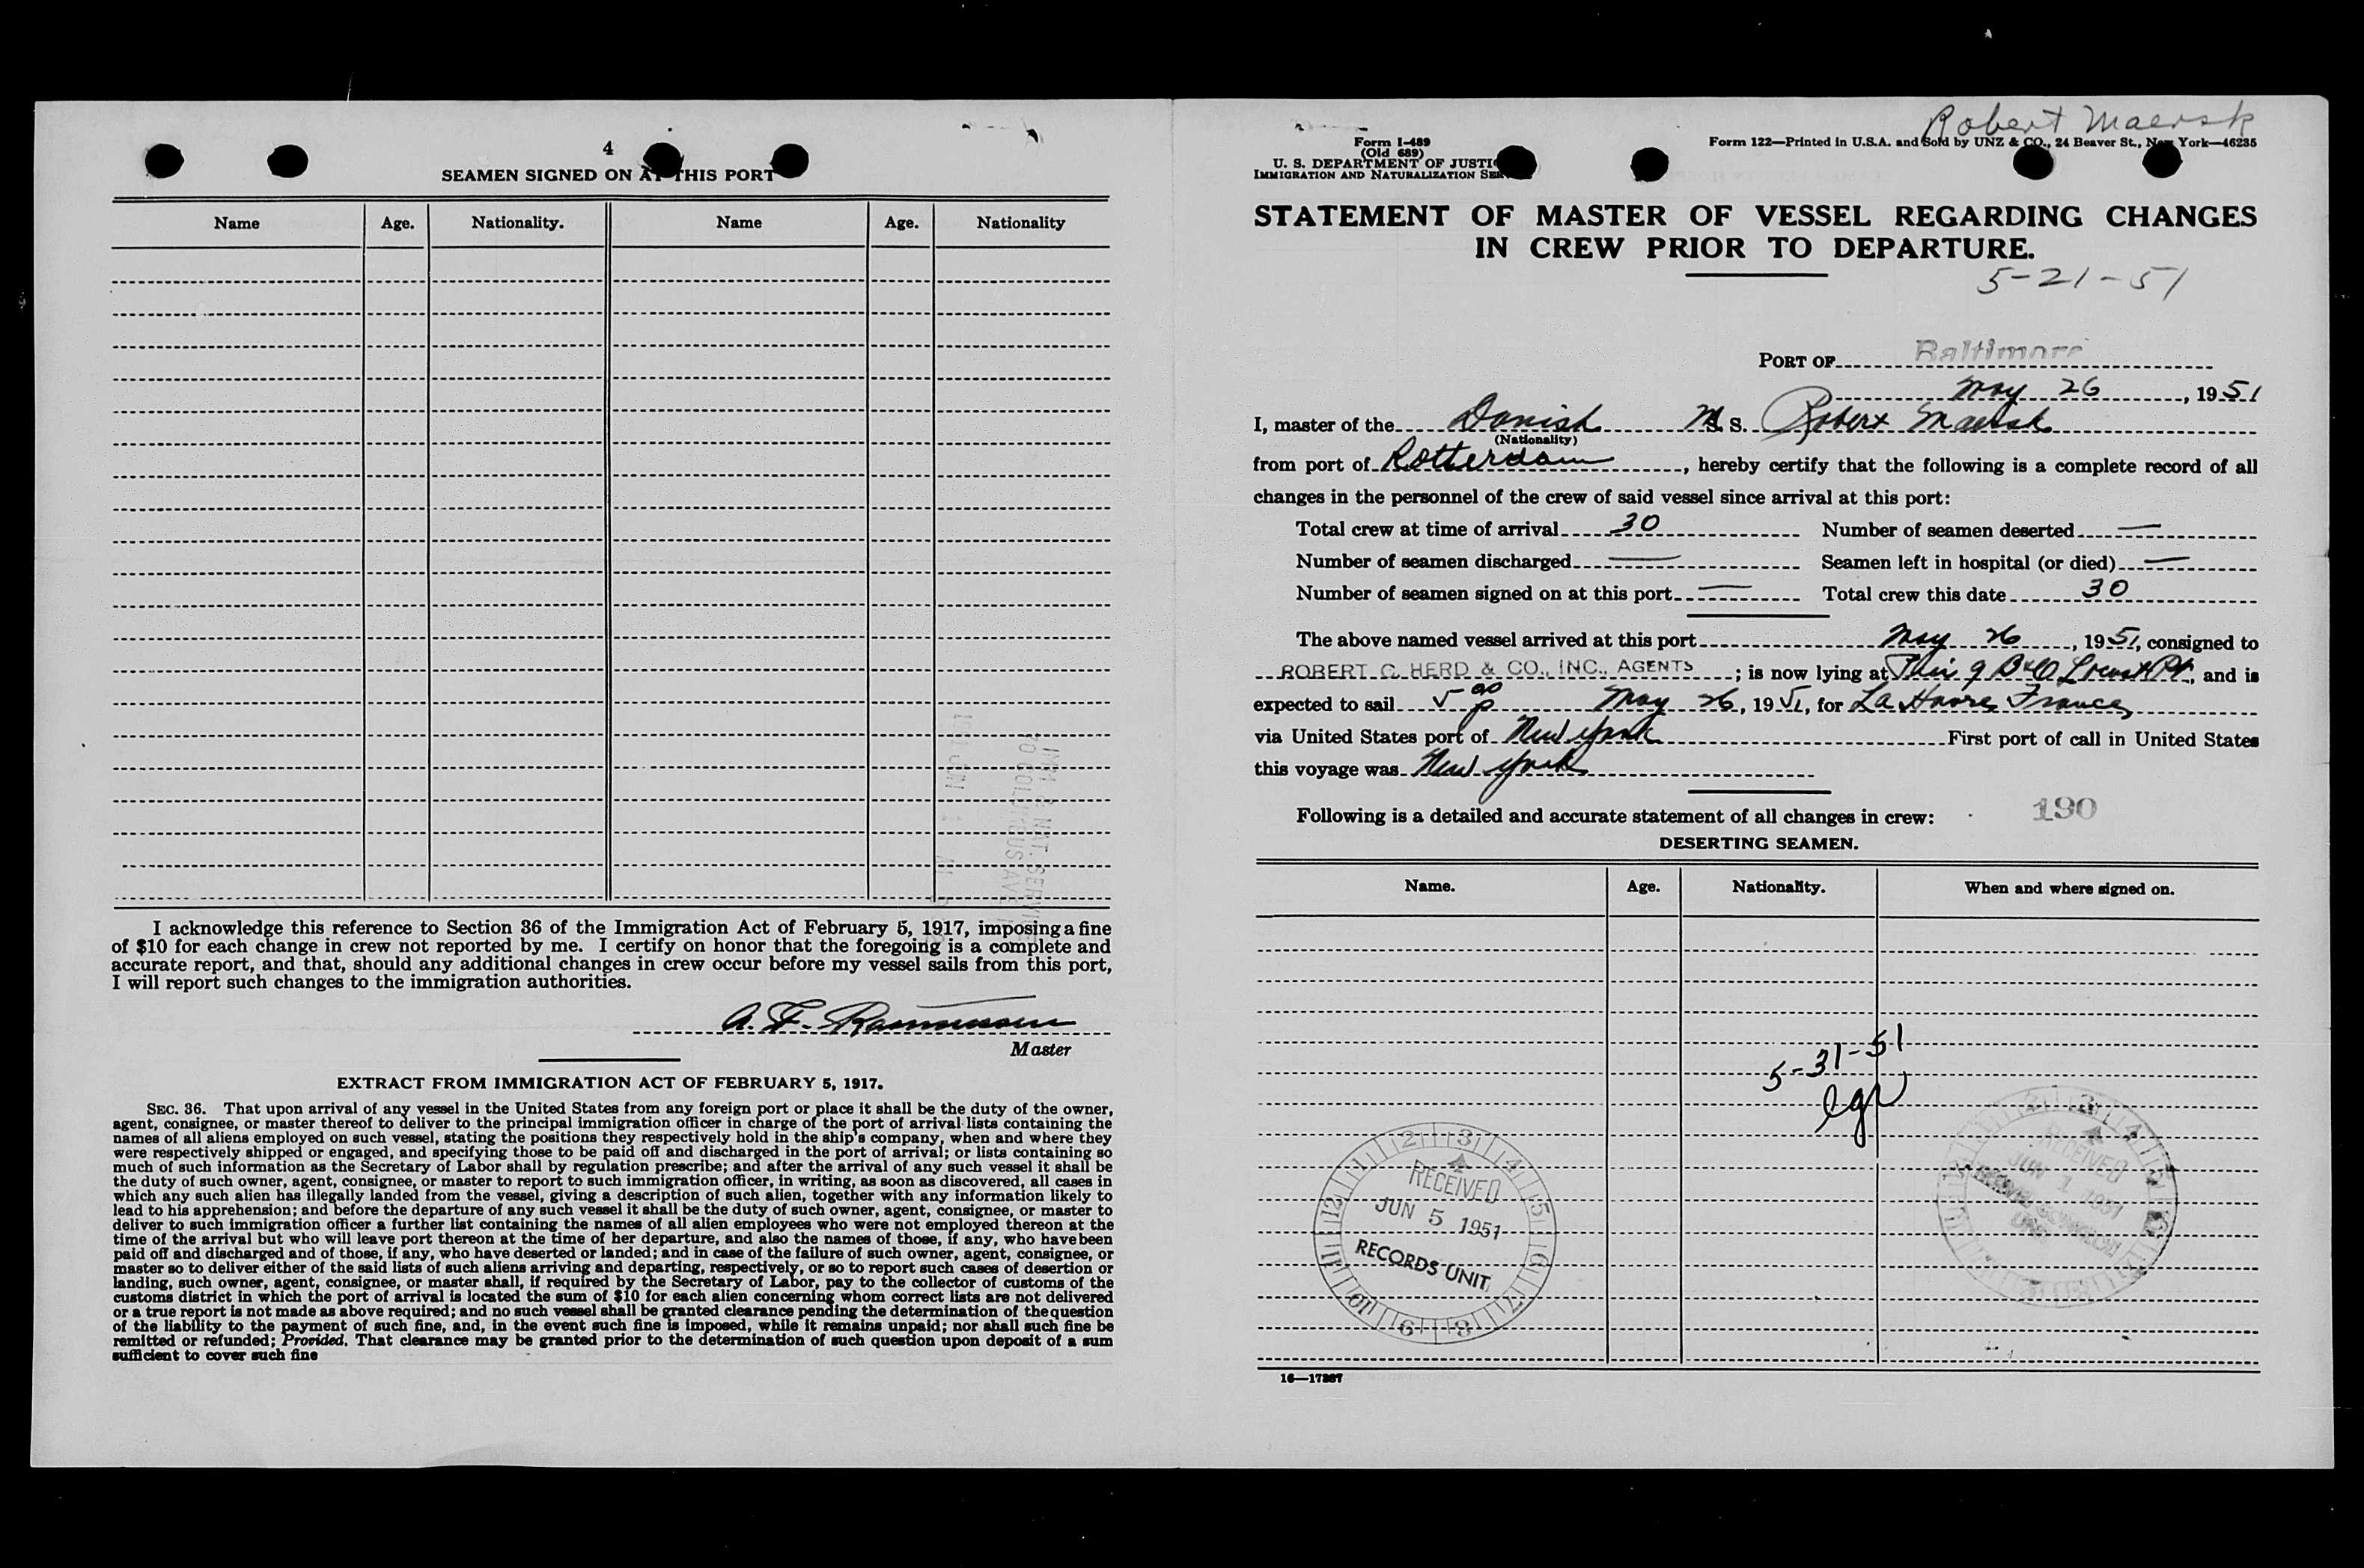 4
SEAMEN SIGNED ON AT THIS PORT
Name Age. Nationality. Name Age. Nationality
I acknowledge this reference to Section 36 of the Immigration Act of February 5, 1917, imposing a fine
of $10 for each change in crew not reported by me. I certify on honor that the foregoing is a complete and
accurate report, and that, should any additional changes in crew occur before my vessel sails from this port,
I will report such changes to the immigration authorities.
A. F. Rasmussen
Master
EXTRACT FROM IMMIGRATION ACT OF FEBRUARY 5, 1917.
SEC. 36. That upon arrival of any vessel in the United States from any foreign port or place it shall be the duty of the owner,
agent, consignee, or master thereof to deliver to the principal immigration officer in charge of the port of arrival lists containing the
names of all aliens employed on such vessel, stating the positions they respectively hold in the ship's company, when and where they
were respectively shipped or engaged, and specifying those to be paid off and discharged in the port of arrival; or lists containing so
much of such information as the Secretary of Labor shall by regulation prescribe; and after the arrival of any such vessel it shall be
the duty of such owner, agent, consignee, or master to report to such immigration officer, in writing, as soon as discovered, all cases in
which any such alien has illegally landed from the vessel, giving a description of such alien, together with any information likely to
lead to his apprehension; and before the departure of any such vessel it shall be the duty of such owner, agent, consignee, or master to
deliver to such immigration officer a further list containing the names of all alien employees who were not employed thereon at the
time of the arrival but who will leave port thereon at the time of her departure, and also the names of those, if any, who have been
paid off and discharged and of those, if any, who have deserted or landed; and in case of the failure of such owner, agent, consignee, or
master so to deliver either of the said lists of such aliens arriving and departing, respectively, or so to report such cases of desertion or
landing, such owner, agent, consignee, or master shall, if required by the Secretary of Labor, pay to the collector of customs of the
customs district in which the port of arrival is located the sum of $10 for each alien concerning whom correct lists are not delivered
or a true report is not made as above required; and no such vessel shall be granted clearance pending the determination of the question
of the liability to the payment of such fine, and, in the event such fine is imposed, while it remains unpaid; nor shall such fine be
remitted or refunded; Provided, That clearance may be granted prior to the determination of such question upon deposit of a sum
sufficient to cover such fine
Robert Maersk
Form I-489
(Old 689)
U. S. DEPARTMENT OF JUSTI
IMMIGRATION AND NATURALIZATION SER
Form 122—Printed in U.S.A. and Sold by UNZ & CO., 24 Beaver St., New York—46235
STATEMENT OF MASTER OF VESSEL REGARDING CHANGES
IN CREW PRIOR TO DEPARTURE.
5-21-51
PORT OF Baltimore
May 26, 1951
I, master of the Danish M. S. Robert Maersk
(Nationality)
from port of Rotterdam, hereby certify that the following is a complete record of all
changes in the personnel of the crew of said vessel since arrival at this port:
Total crew at time of arrival 30 Number of seamen deserted —
Number of seamen discharged — Seamen left in hospital (or died) —
Number of seamen signed on at this port — Total crew this date 30
The above named vessel arrived at this port May 26, 1951, consigned to
ROBERT C. HERD & CO., INC., AGENTS; is now lying at Pier 9 B&O Locust Pt, and is
expected to sail 5 00 p May 26, 1951, for La Havre, France,
via United States port of New York First port of call in United States
this voyage was New York
Following is a detailed and accurate statement of all changes in crew:
190
DESERTING SEAMEN.
Name. Age. Nationality. When and where signed on.
5-31-51
RECEIVED
JUN 5 1951
RECORDS UNIT
RECEIVED
JUN 1 1951
16—17287